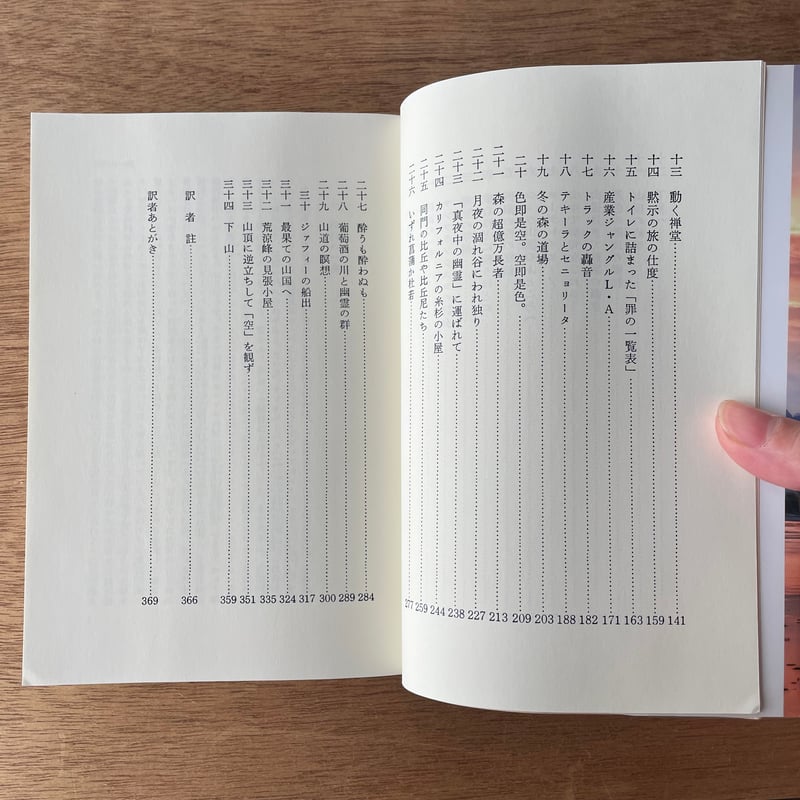 十三 動く禅堂 141
十四 黙示の旅の仕度 159
十五 トイレに詰まった「罪の一覧表」 163
十六 産業ジャングルL・A 171
十七 トラックの轟音 182
十八 テキーラとセニョリータ 188
十九 冬の森の道場 203
二十 色即是空。空即是色。 209
二十一 森の超億万長者 213
二十二 月夜の涸れ谷にわれ独り 227
二十三 「真夜中の幽霊」に運ばれて 238
二十四 カリフォルニアの糸杉の小屋 244
二十五 同門の比丘や比丘尼たち 259
二十六 いずれ菖蒲か杜若 277
二十七 酔うも酔わぬも 284
二十八 葡萄酒の川と幽霊の群 289
二十九 山道の瞑想 300
三十 ジァフィーの船出 317
三十一 最果ての山国へ 324
三十二 荒涼峰の見張小屋 335
三十三 山頂に逆立ちして「空」を観ず 351
三十四 下山 359
訳者註 366
訳者あとがき 369